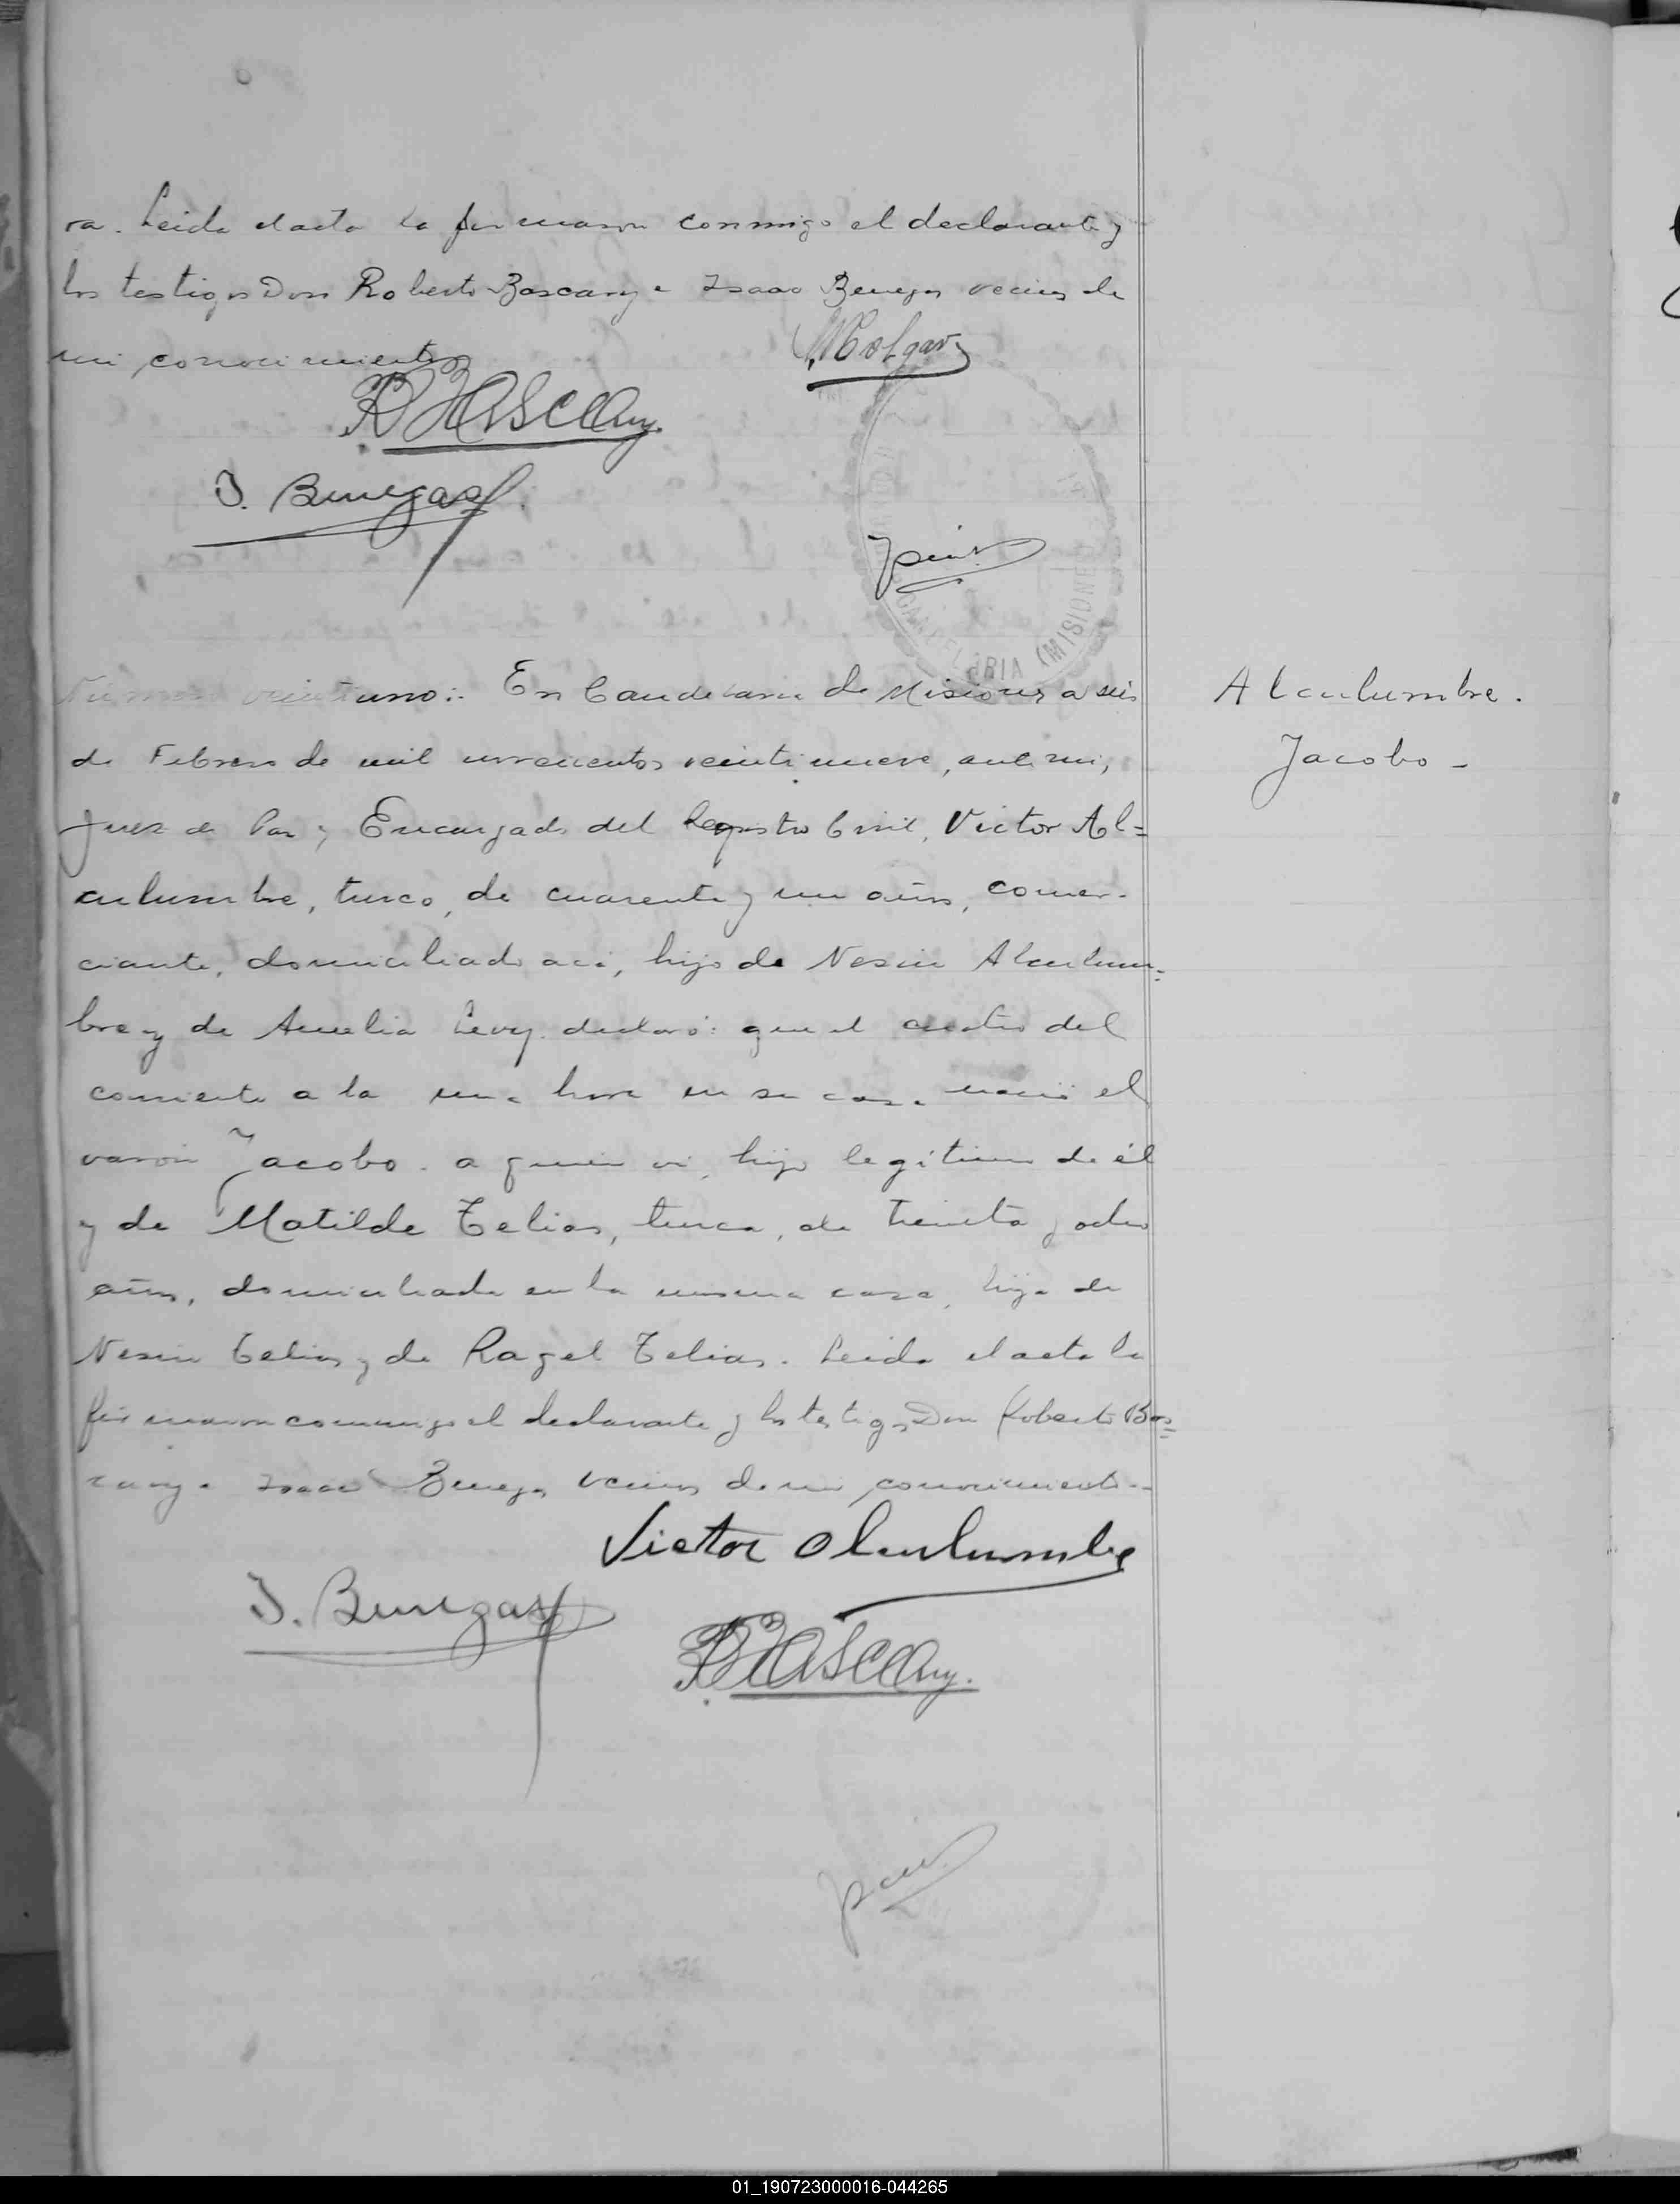 ra. Leida el acta la firmaron conmigo el declarante y
los testigos Don Roberto Bascary e Isaac Benegas vecinos de
mi conocimiento
R Bascary.
I. Benegas
CANDELARIA (MISIONES)
Número veintiuno:. En Candelaria de Misiones a seis
Alculumbre.
de Febrero de mil novecientos veintinueve, ante mi,
Jacobo -
Juez de Paz y Encargado del Registro Civil, Victor Al=
culumbre, turco, de cuarenta y un años, comer-
ciante, domiciliado acá, hijo de Nesin Alculum=
bre y de Amelia Levy. declaró: que el cuatro del
corriente a la una hora en su casa nació el
varon Jacobo. a quien vi, hijo legítimo de él
y de Matilde Telias, turca, de treinta y ocho
años, domiciliada en la misma casa, hija de
Nesin Telias y de Raquel Telias. Leida el acta la
firmaron conmigo el declarante y los testigos Don Roberto Bas=
cary e Isaac Benegas vecinos de mi conocimiento.-
Victor Alculumbre
I. Benegas
R Bascary.
01_190723000016-044265